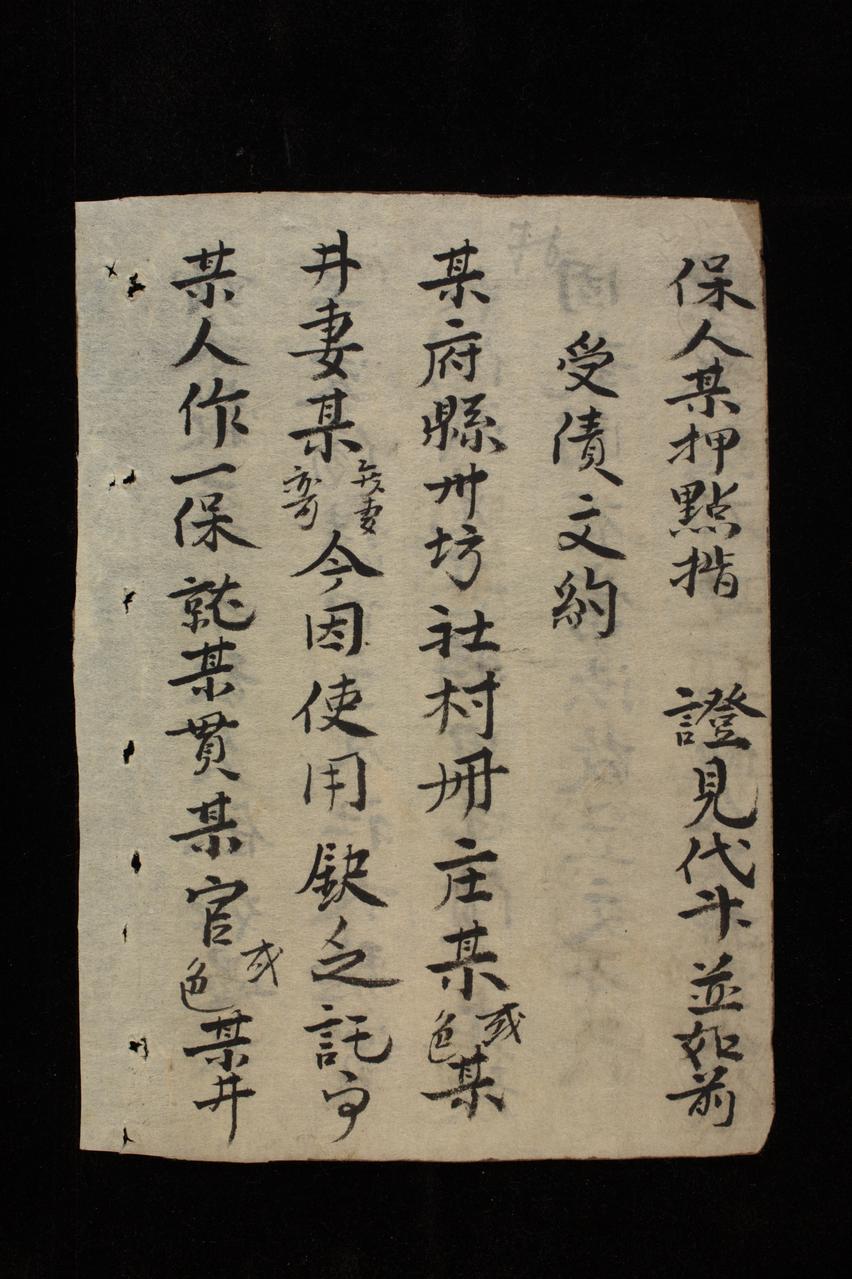 保人某押點指 證見代斗並如前
受債文約
某府縣州坊社村册庄某或色某
井妻某旡妻亦可今因使用鈌乏託
某人作一保就某貫某官或色某井